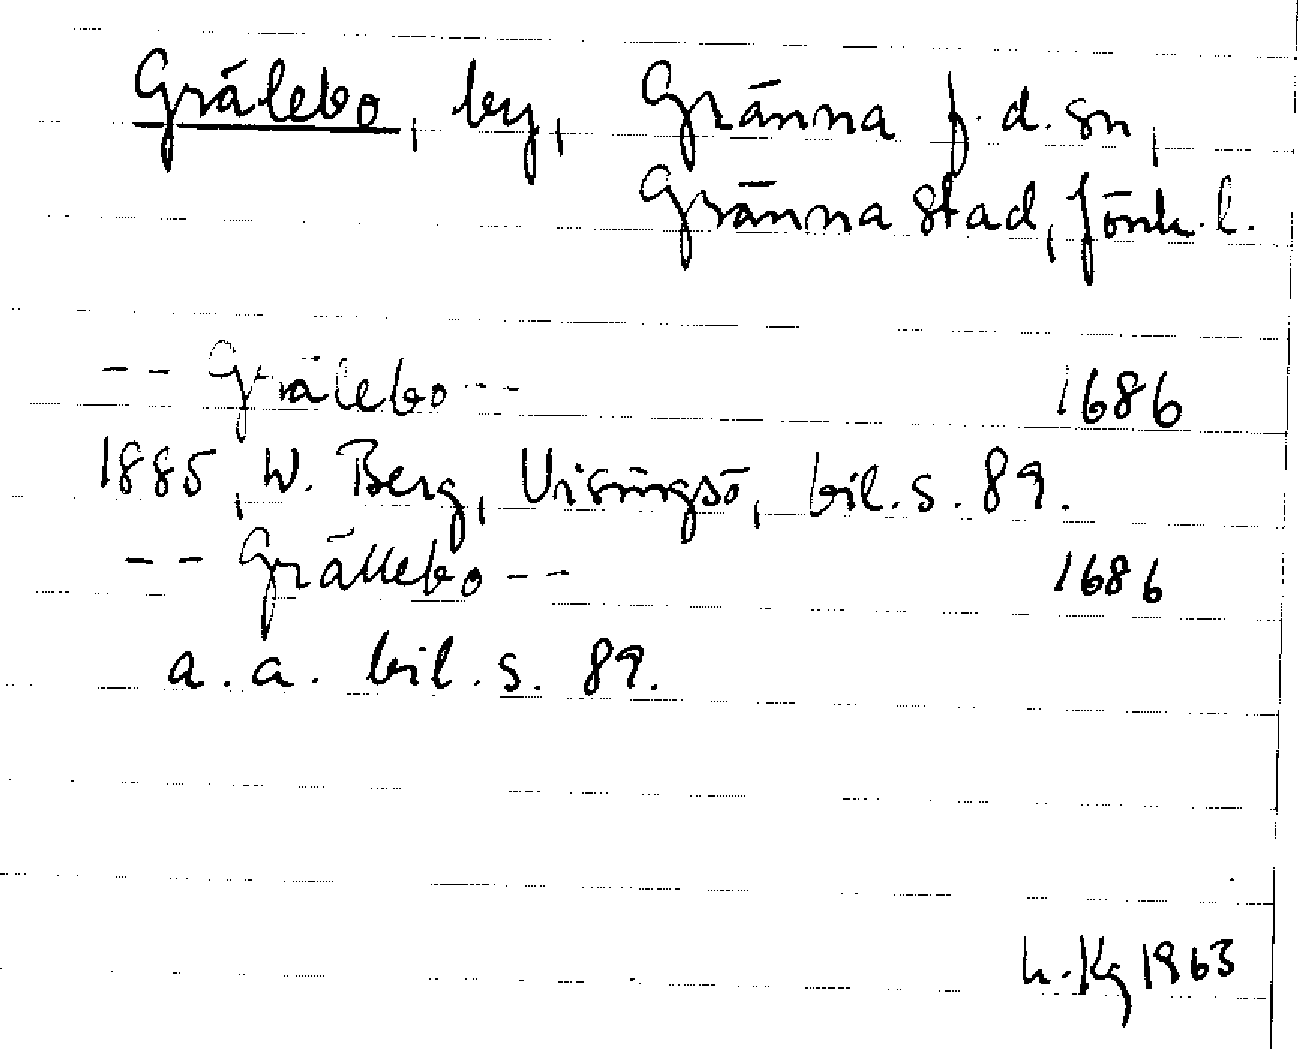 Grälebo, by, Gränna f.d. sn,
Gränna stad, Jönk. l.
-- Grälebo -- 1686
1885, W. Berg, Visingsö, bil. s. 89.
-- Grällebo -- 1686
a. a. bil. s. 89.
L. Kg 1963